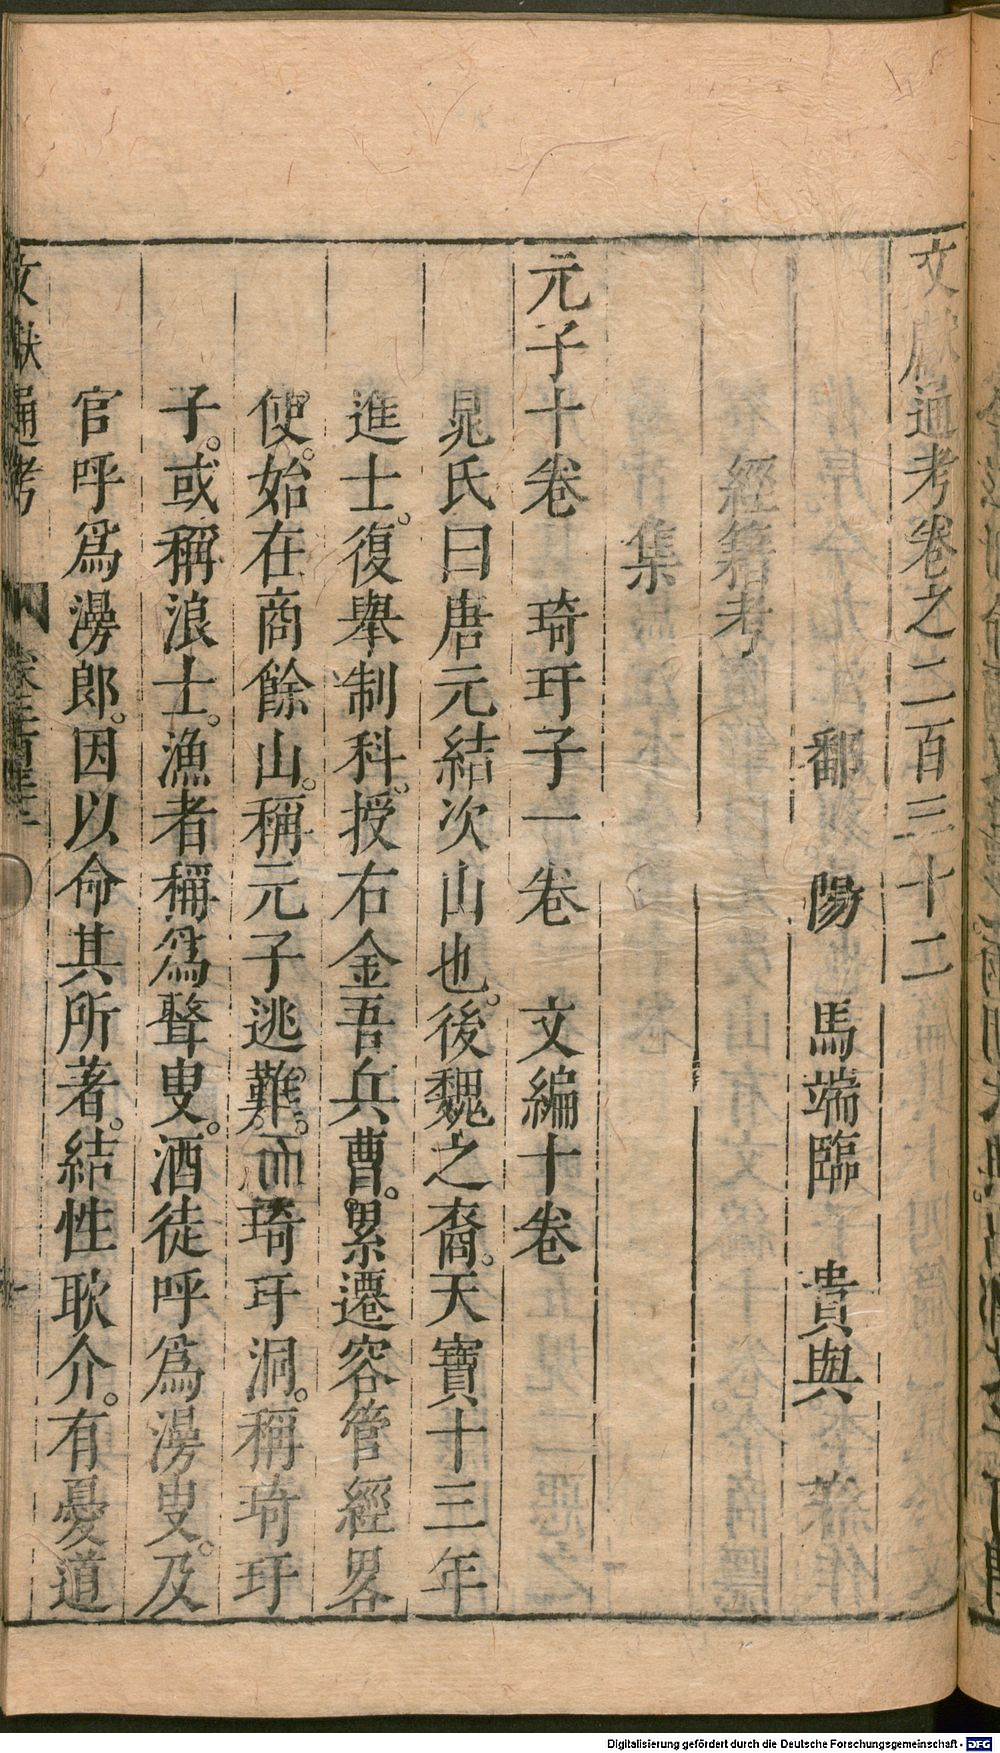 文獻通考卷之二百三十二
鄱陽　馬端臨　貴與　著
經籍考
集
元子十卷　琦玗子一卷　文編十卷
晁氏曰唐元結次山也。後魏之裔。天寶十三年
進士。復舉制科。授右金吾兵曹。累遷容管經畧
使。始在商餘山。稱元子逃難。而琦玗洞。稱琦玗
子。或稱浪士。漁者稱爲聱叟。酒徒呼爲漫叟。及
官呼爲漫郎。因以命其所著。結性耿介。有憂道
文獻通考
Digitalisierung gefördert durch die Deutsche Forschungsgemeinschaft - DFG